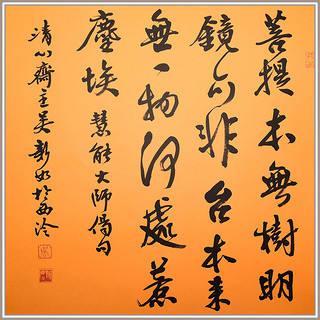 菩提本無樹明
鏡亦非台本來
無一物何處惹
塵埃
慧能大師偈句
清心齋主吴新如於西泠